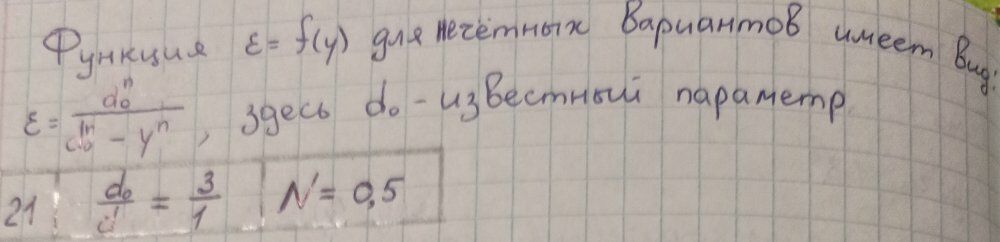 Функция ε = f(y) для нечётных вариантов имеет вид:
ε = d₀ⁿ / (d₀ⁿ - yⁿ), здесь d₀ - известный параметр
21 d₀/d = 3/1 N = 0,5